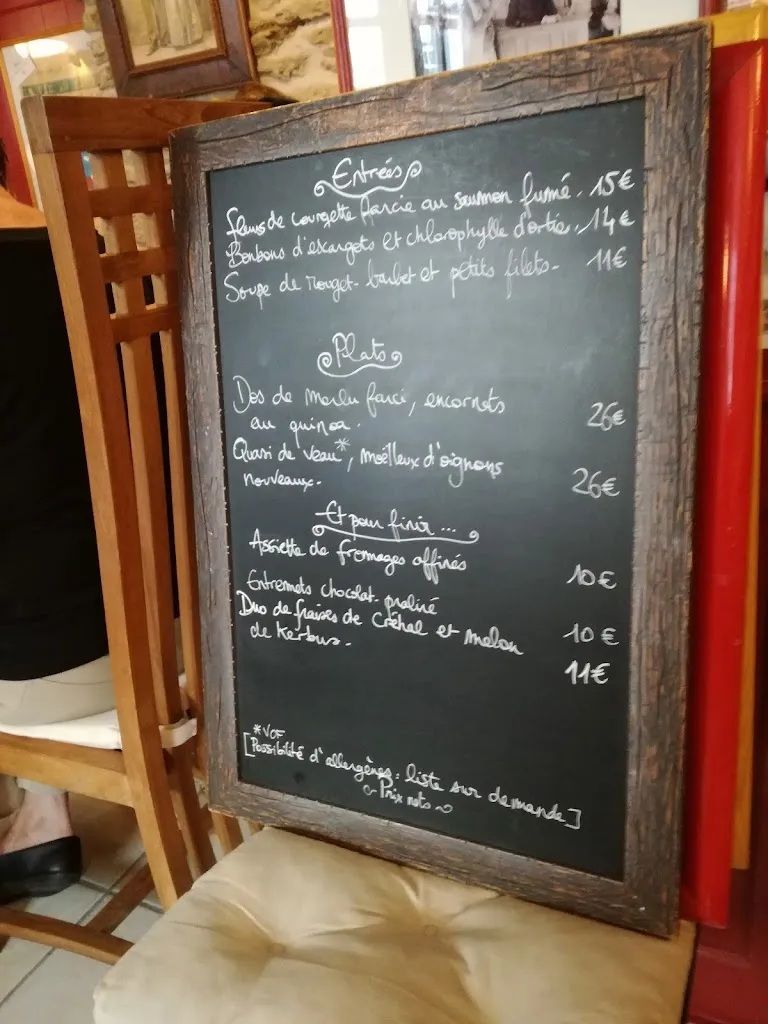 Entrées
fleurs de courgette farcie au saumon fumé. 15€
Bonbons d'escargots et chlorophylle d'ortie. 14€
Soupe de rouget-barbet et petits filets- 11€
Plats
Dos de merlu farci, encornets
au quinoa. 26€
Quasi de veau*, moëlleux d'oignons
nouveaux. 26€
Et pour finir ...
Assiette de fromages affinés 10€
Entremets chocolat-praliné 10€
Duo de fraises de Créhal et melon
de Kerbus. 11€
*VOF
[Possibilité d'allergènes: liste sur demande]
~ Prix nets ~